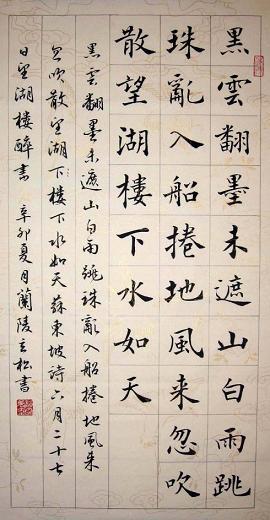 黑雲翻墨未遮山白雨跳
珠亂入船捲地風来忽吹
散望湖樓下水如天
黑雲翻墨未遮山白雨跳珠亂入船捲地風来
忽吹散望湖下樓下水如天蘇東坡詩六月二十七
日望湖樓醉書 辛卯夏月蘭陵松書